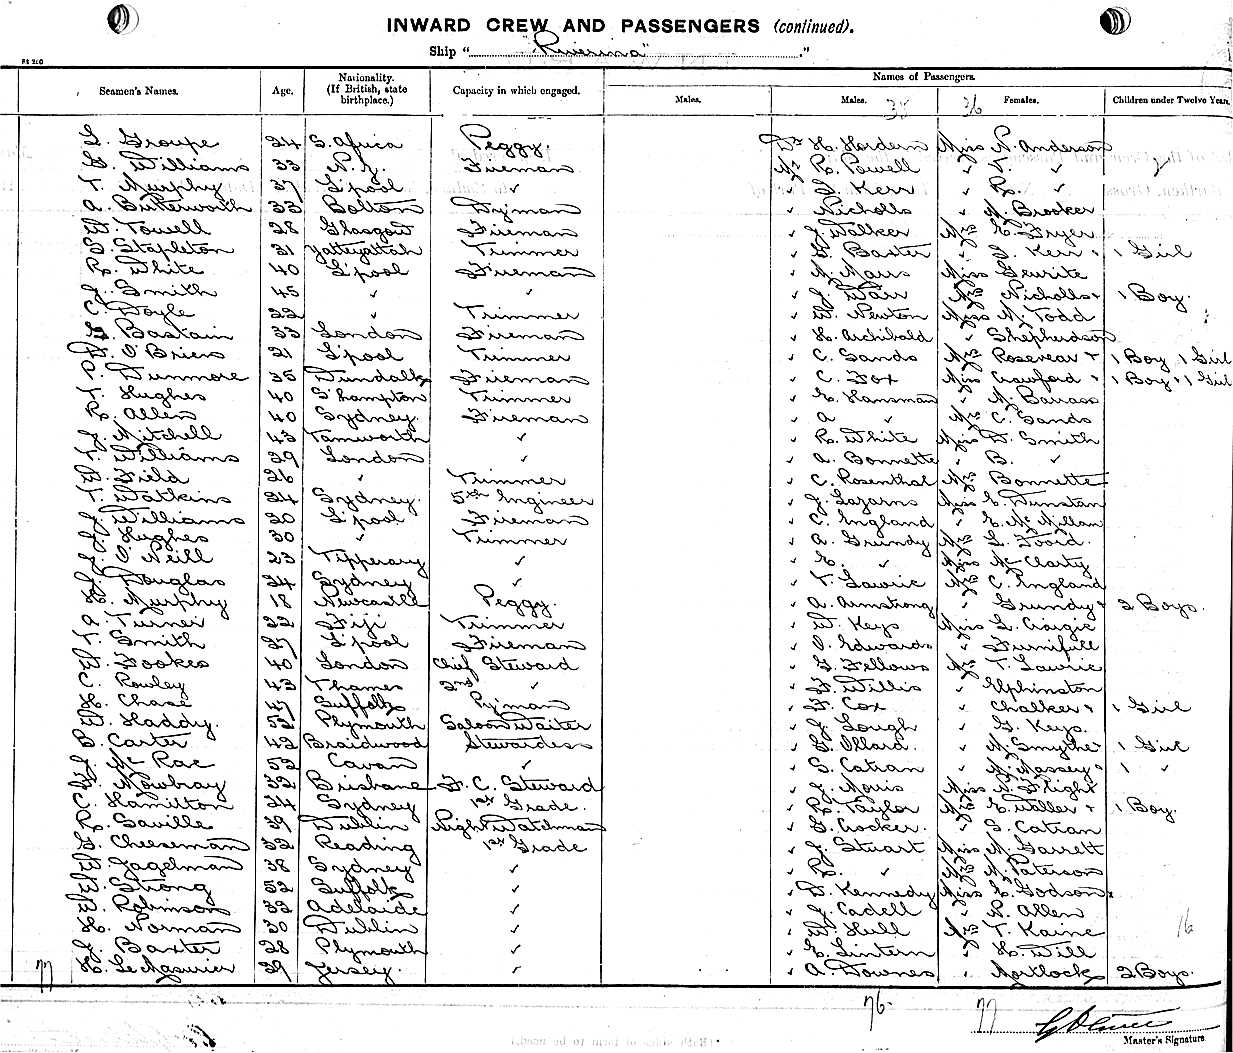 INWARD CREW AND PASSENGERS (continued).
Ship "Riverina"
Seamen's Names. Age. Nationality. (If British, state birthplace.) Capacity in which engaged. Names of Passengers.
Males. Males. 38 36 Females. Children under Twelve Years.
Groupe 24 S. Africa Peggy. Dr H. Hordern Miss N. Anderson
Williams 33 N.Z. Fireman Mr R. Powell " V. "
T. Murphy 37 L'pool " " Kerr " "
A. Butterworth 33 Bolton D'yman " Nicholls " M. Brooker
W. Towell 28 Glasgow Fireman " J. Walker Mrs Fryer
S. Stapleton 31 Yatteyattah Trimmer " Baxter " Kerr + 1 Girl
R. White 40 L'pool Fireman " Marrs Miss Gewrite
J. Smith 45 " " " J. Marr Mrs Nicholls + 1 Boy.
C. Doyle 22 " Trimmer " W. Newton Miss M. Todd
Bastain 33 London Fireman " H. Archibald " Shepherdson
O'Brien 21 L'pool Trimmer " C. Sands Mrs Rosevear + 1 Boy 1 Girl
P. Dunmore 35 Dundalk Fireman " C. Fox Miss Crawford + 1 Boy + 1 Girl
T. Hughes 40 S'hampton Trimmer " Hansman " N. Barrass
R. Allen 40 Sydney. Fireman " A " Mrs C. Sands
J. Mitchell 43 Tamworth " " R. White Miss D. Smith
T. Williams 29 London " " A. Bonnette " B. "
W. Field 26 " Trimmer " C. Rosenthal Mrs Bonnette
T. Watkins 24 Sydney. 5th Engineer " J. Lazarus Miss E. Dunstan
J. Williams 30 L'pool Fireman " C. England " E. McMillan
J. Hughes 30 " Trimmer " A. Grundy Mrs L. Foord.
J. O'Neill 23 Tipperary " " E. " Miss McClarty
Douglas 24 Sydney " " T. Lawrie Mrs C. England
H. Murphy 18 Newcastle Peggy. " A. Armstrong " Grundy + 2 Boys.
A. Turner 22 Fiji Trimmer " W. Keys Miss L. Craigie
T. Smith 27 L'pool Fireman " O. Edwards " Turnifill
W. Fookes 40 London Chief Steward " G. Fellows Mrs T. Lawrie
C. Rowley 43 Thames 2nd " " F. Willis " Elphinston
H. Chase 47 Suffolk P'yman " F. Cox " Chalker + 1 Girl
W. Haddy. 52 Plymouth Saloon Waiter " J. Lough " G. Keys
B. Carter 42 Braidwood Stewardess " G. Ollard. " M. Smythe 1 Girl
J. McRae 52 Cavan " " S. Catran " M. Massey + 1 "
Mowbray 32 Brisbane F. C. Steward " J. Moris Miss N. Flight
C. Hamilton 24 Sydney 1st Grade. " R. Taylor Mrs E. Willer + 1 Boy.
R. Saville 39 Dublin Night Watchman " G. Crocker. " S. Catran
G. Cheeseman 32 Reading 1st Grade " J. Stuart Miss M. Garrett
W. Jagelman 38 Sydney " " R. " Mrs M. Paterson
W. Strong 52 Suffolk " " D. Kennedy Miss E. Godson
W. Robinson 32 Adelaide " " J. Cadell " R. Allen
H. Norman 30 Dublin " " W. Hull Mrs T. Kaine 16
J. Baxter 28 Plymouth " " E. Lintern " H. Dill
77 H. Le Masurier 29 Jersey. " " A. Downes " Mortlock 2 Boys.
76. 77
Master's Signature.